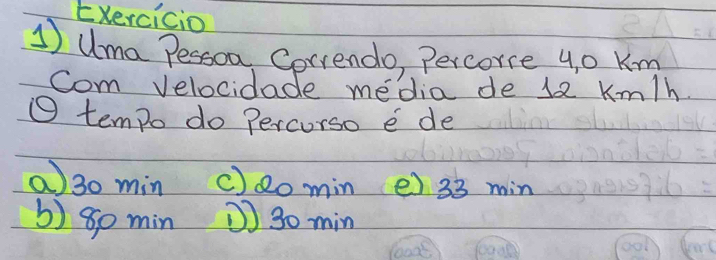 Exercício
1) Uma Pessoa Correndo, Percorre 4,0 Km
Com velocidade média de 12 Km/h.
O tempo do Percurso é de
a) 30 min c) 20 min e) 33 min
b) 8,0 min D) 30 min